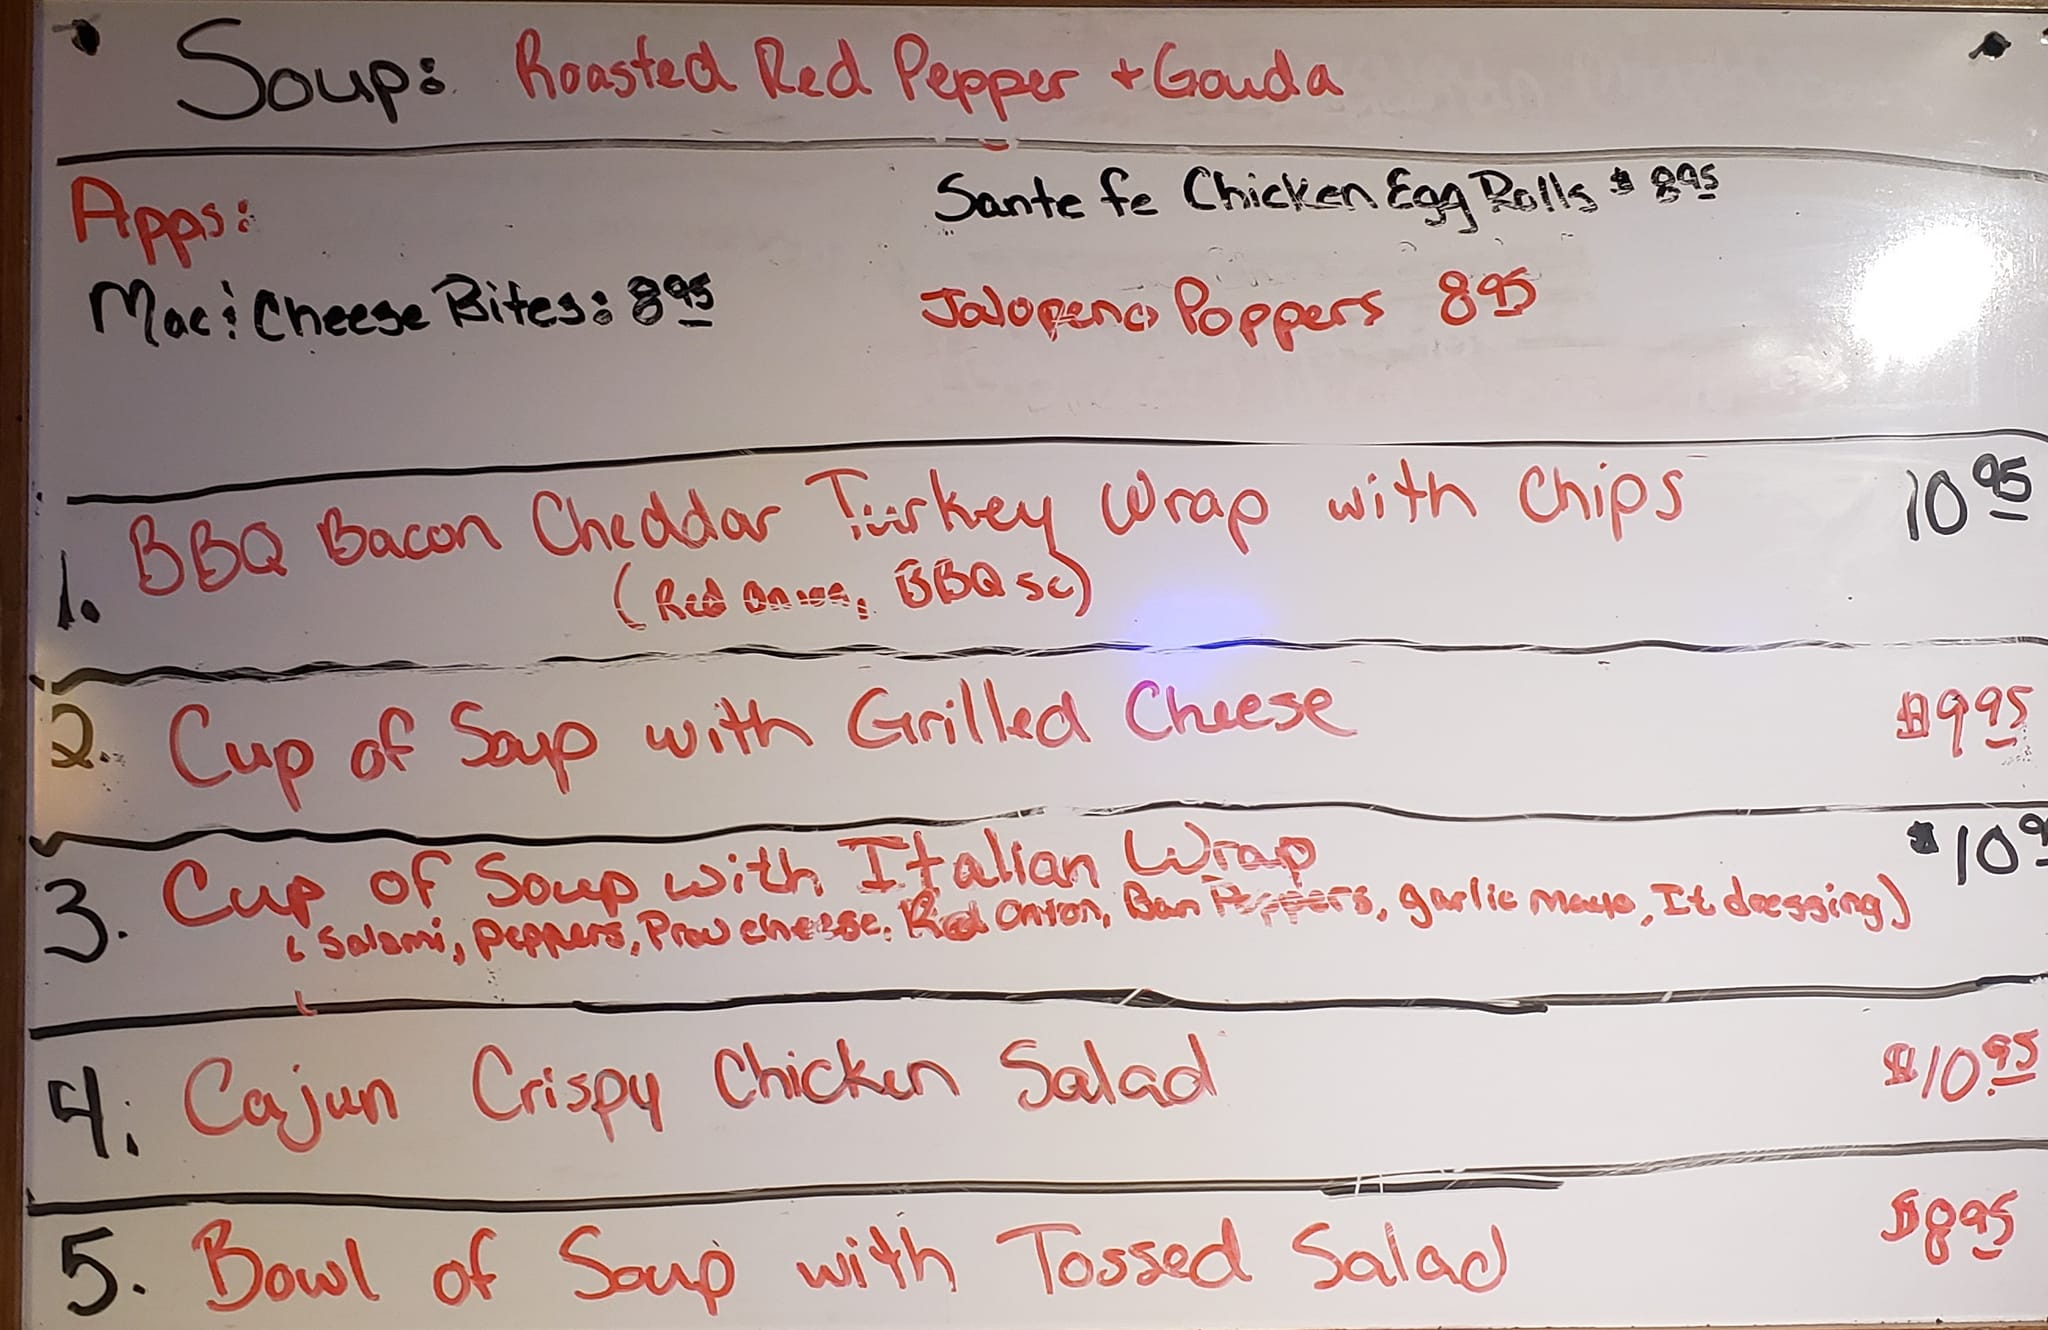 Soup: Roasted Red Pepper + Gouda
Apps:
Sante fe Chicken Egg Rolls $ 895
Mac & Cheese Bites: 895
Jalopeno Poppers 895
1. BBQ Bacon Cheddar Turkey Wrap with Chips 1095
(Red Onion, BBQ sc)
2. Cup of Soup with Grilled Cheese $995
3. Cup of Soup with Italian Wrap $109
(Salami, peppers, Prov cheese, Red Onion, Ban Peppers, garlic Mayo, It dressing)
4. Cajun Crispy Chicken Salad $1095
5. Bowl of Soup with Tossed Salad $895